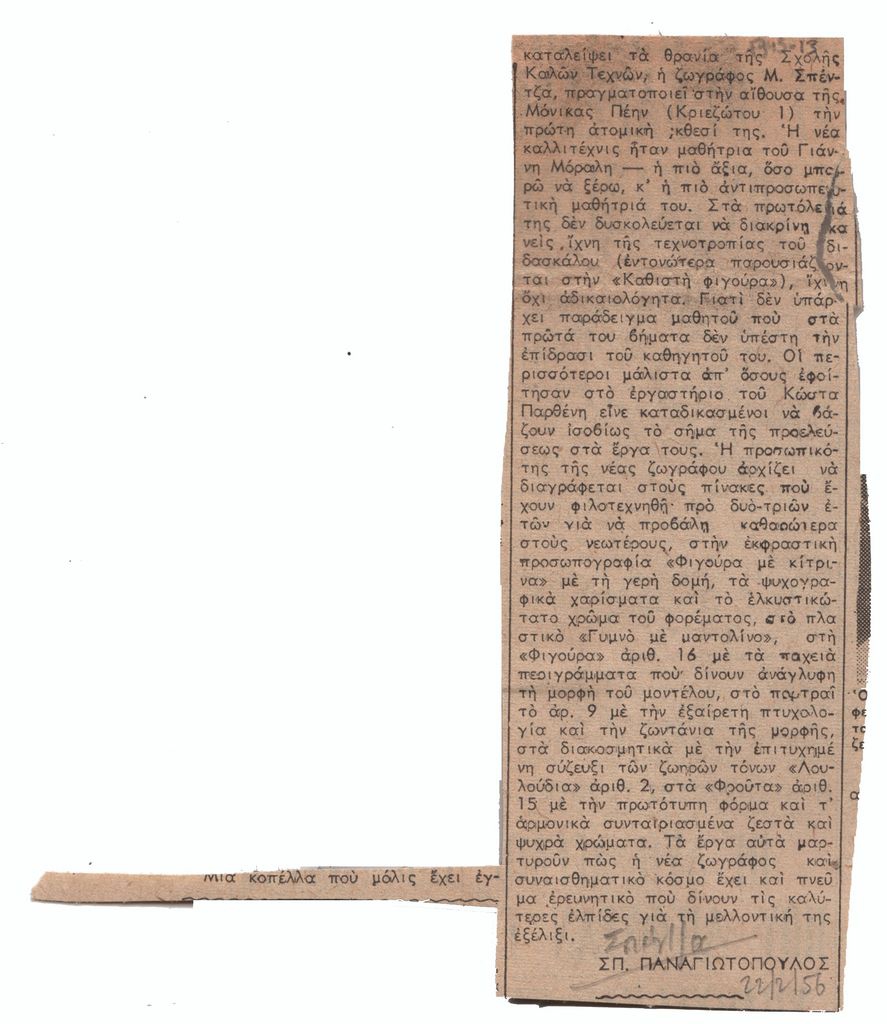 Μιά κοπέλλα ποὺ μόλις ἔχει ἐγ-
καταλείψει τὰ θρανία τῆς Σχολῆς
Καλῶν Τεχνῶν, ἡ ζωγράφος Μ. Σπέν-
τζα, πραγματοποιεῖ στὴν αἴθουσα τῆς
Μόνικας Πέην (Κριεζώτου 1) τὴν
πρώτη ἀτομικὴ ;κθεσί της. Ἡ νέα
καλλιτέχνις ἦταν μαθήτρια τοῦ Γιάν-
νη Μόραλη — ἡ πιὸ ἄξια, ὅσο μπο-
ρῶ νὰ ξέρω, κ' ἡ πιὸ ἀντιπροσωπευ-
τικὴ μαθήτριά του. Στὰ πρωτόλειά
της δὲν δυσκολεύεται νὰ διακρίνη κα
νεὶς ἴχνη τῆς τεχνοτροπίας τοῦ δι-
δασκάλου (ἐντονώτερα παρουσιάζον-
ται στὴν «Καθιστὴ φιγούρα»), ἴχνη
ὄχι ἀδικαιολόγητα. Γιατὶ δὲν ὑπάρ-
χει παράδειγμα μαθητοῦ ποὺ στὰ
πρῶτά του βήματα δὲν ὑπέστη τὴν
ἐπίδρασι τοῦ καθηγητοῦ του. Οἱ πε-
ρισσότεροι μάλιστα ἀπ' ὅσους ἐφοί-
τησαν στὸ ἐργαστήριο τοῦ Κώστα
Παρθένη εἶνε καταδικασμένοι νὰ βά-
ζουν ἰσοβίως τὸ σῆμα τῆς προελεύ-
σεως στὰ ἔργα τους. Ἡ προσωπικό-
της τῆς νέας ζωγράφου ἀρχίζει νὰ
διαγράφεται στοὺς πίνακες ποὺ ἔ-
χουν φιλοτεχνηθῆ πρὸ δυὸ-τριῶν ἐ-
τῶν γιὰ νὰ προβάλη καθαρώτερα
στοὺς νεωτέρους, στὴν ἐκφραστικὴ
προσωπογραφία «Φιγούρα μὲ κίτρι-
να» μὲ τὴ γερὴ δομή, τὰ ψυχογρα-
φικὰ χαρίσματα καὶ τὸ ἑλκυστικώ-
τατο χρῶμα τοῦ φορέματος, στὸ πλα
στικὸ «Γυμνὸ μὲ μαντολίνο», στὴ
«Φιγούρα» ἀριθ. 16 μὲ τὰ παχειὰ
περιγράμματα ποὺ δίνουν ἀνάγλυφη
τὴ μορφὴ τοῦ μοντέλου, στὸ πορτραῖ
το ἀρ. 9 μὲ τὴν ἐξαίρετη πτυχολο-
γία καὶ τὴν ζωντάνια τῆς μορφῆς,
στὰ διακοσμητικὰ μὲ τὴν ἐπιτυχημέ
νη σύζευξι τῶν ζωηρῶν τόνων «Λου-
λούδια» ἀριθ. 2, στὰ «Φροῦτα» ἀριθ.
15 μὲ τὴν πρωτότυπη φόρμα καὶ τ'
ἁρμονικὰ συνταιριασμένα ζεστὰ καὶ
ψυχρὰ χρώματα. Τὰ ἔργα αὐτὰ μαρ-
τυροῦν πὼς ἡ νέα ζωγράφος καὶ
συναισθηματικὸ κόσμο ἔχει καὶ πνεῦ
μα ἐρευνητικὸ ποὺ δίνουν τὶς καλύ-
τερες ἐλπίδες γιὰ τὴ μελλοντική της
ἐξέλιξι.
ΣΠ. ΠΑΝΑΓΙΩΤΟΠΟΥΛΟΣ
22/2/56